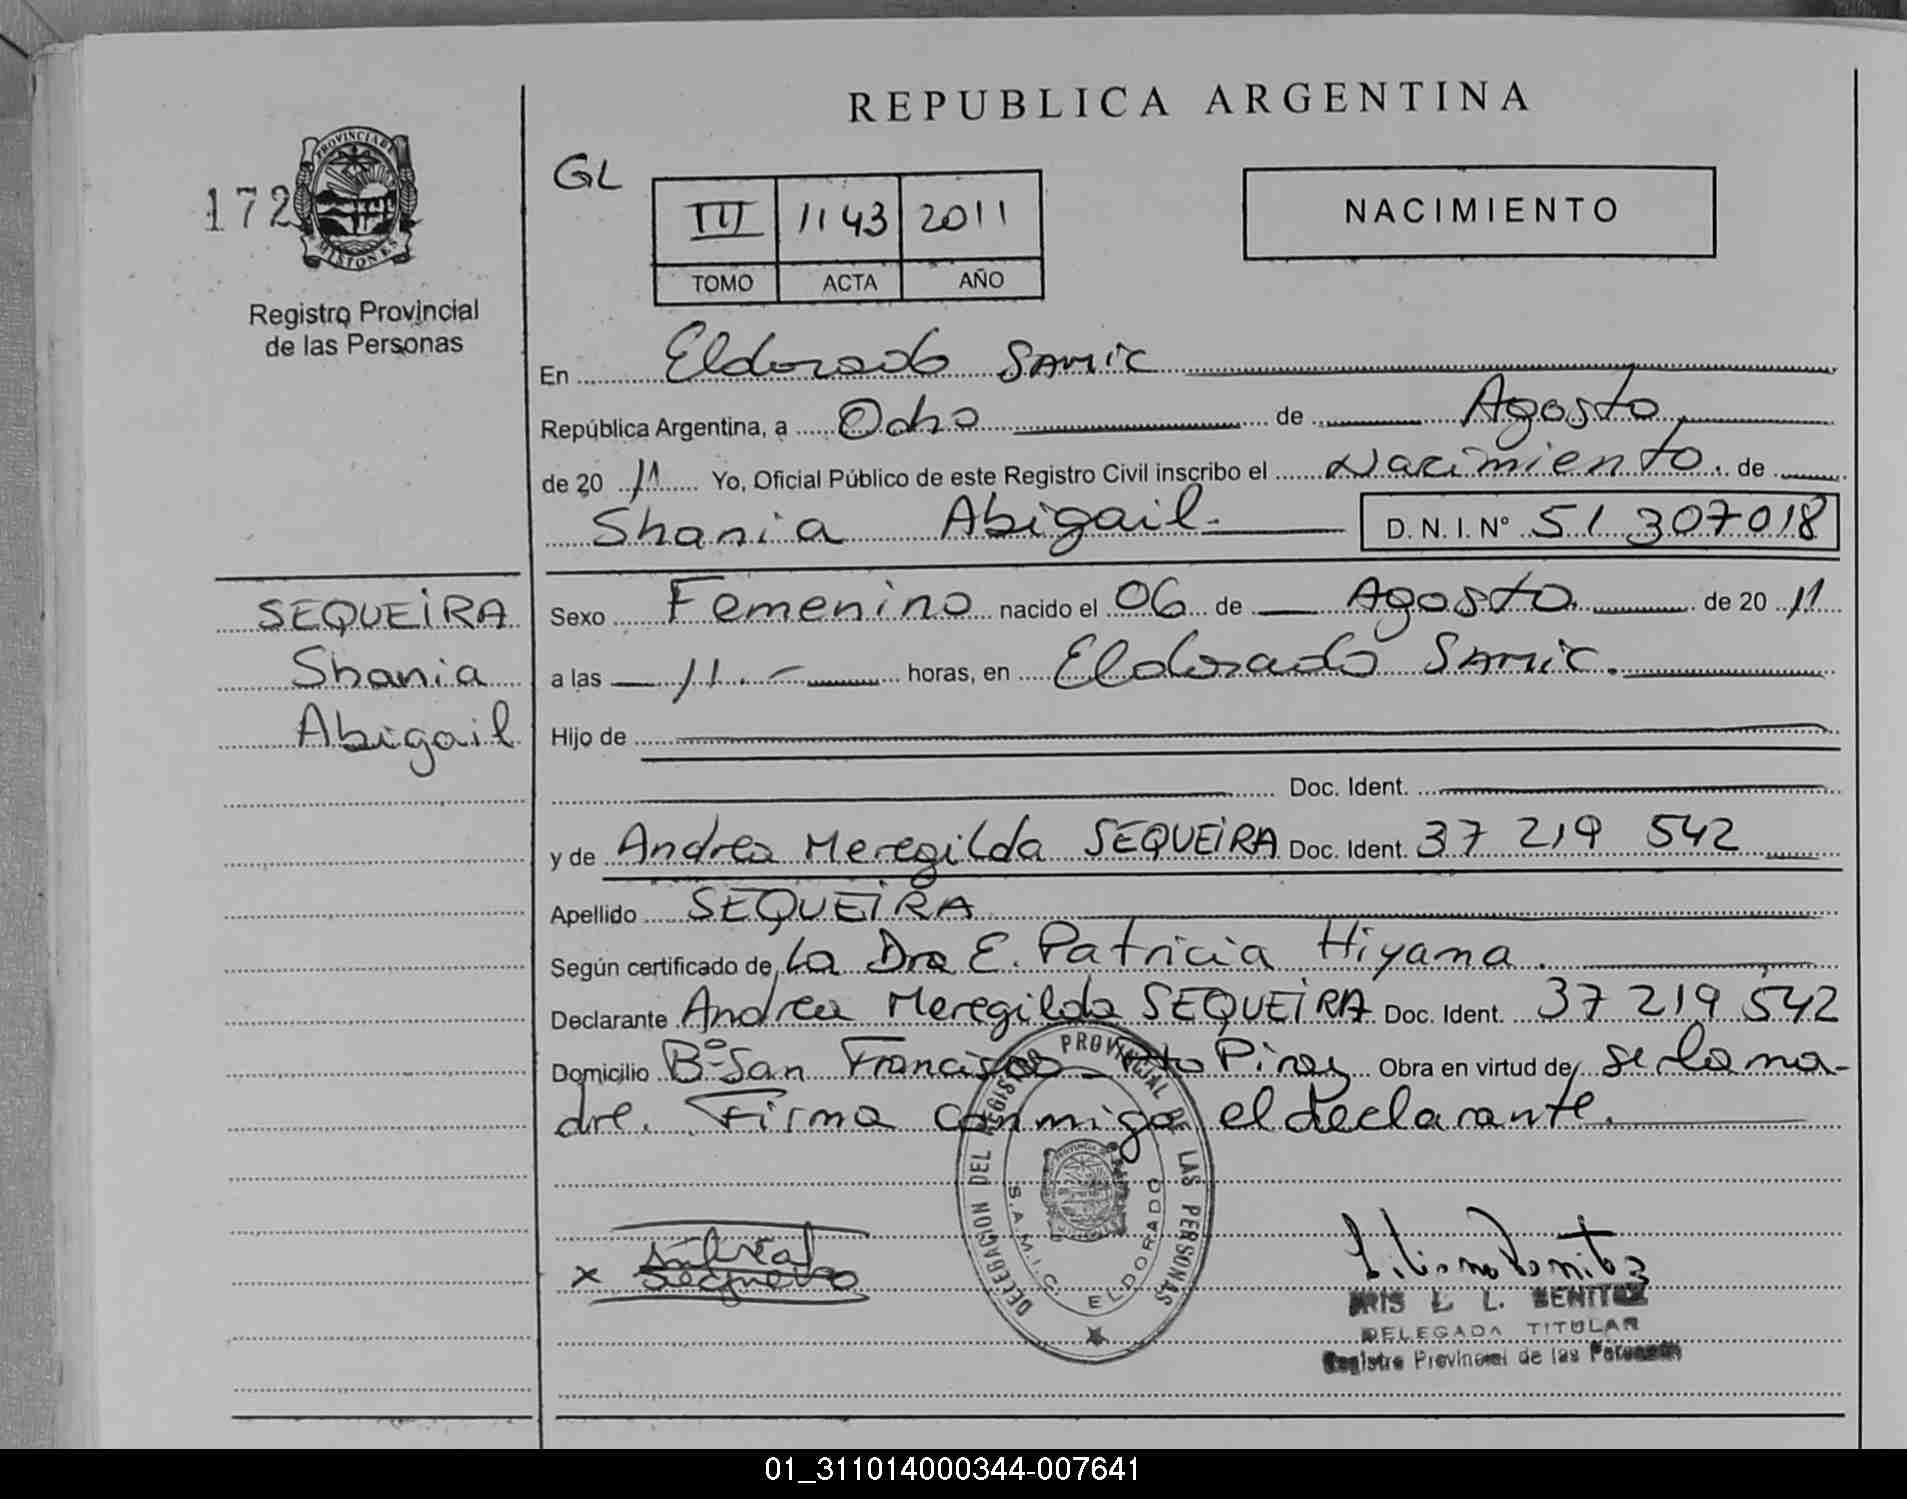 REPUBLICA ARGENTINA
172
PROVINCIA DE
MISIONES
Registro Provincial
de las Personas
GL
III 1143 2011
TOMO ACTA AÑO
NACIMIENTO
En Eldorado Samic
República Argentina, a Ocho de Agosto
de 2011 Yo, Oficial Público de este Registro Civil inscribo el Nacimiento de
Shania Abigail D. N. I. Nº 51 307018
SEQUEIRA
Shania
Abigail
Sexo Femenino nacido el 06 de Agosto de 2011
a las 11.- horas, en Eldorado Samic.
Hijo de
Doc. Ident.
y de Andrea Meregilda SEQUEIRA Doc. Ident. 37 219 542
Apellido SEQUEIRA
Según certificado de La Dra E. Patricia Hiyama.
Declarante Andrea Meregilda SEQUEIRA Doc. Ident. 37 219 542
Domicilio Bº San Francisco - Pto Piray Obra en virtud de ser la ma-
dre. Firma conmigo el declarante.
DELEGACION DEL REGISTRO PROVINCIAL DE LAS PERSONAS
S.A.M.I.C. ELDORADO
x Sequeira
IRIS L. L. BENITEZ
DELEGADA TITULAR
Registro Provincial de las Personas
01_311014000344-007641